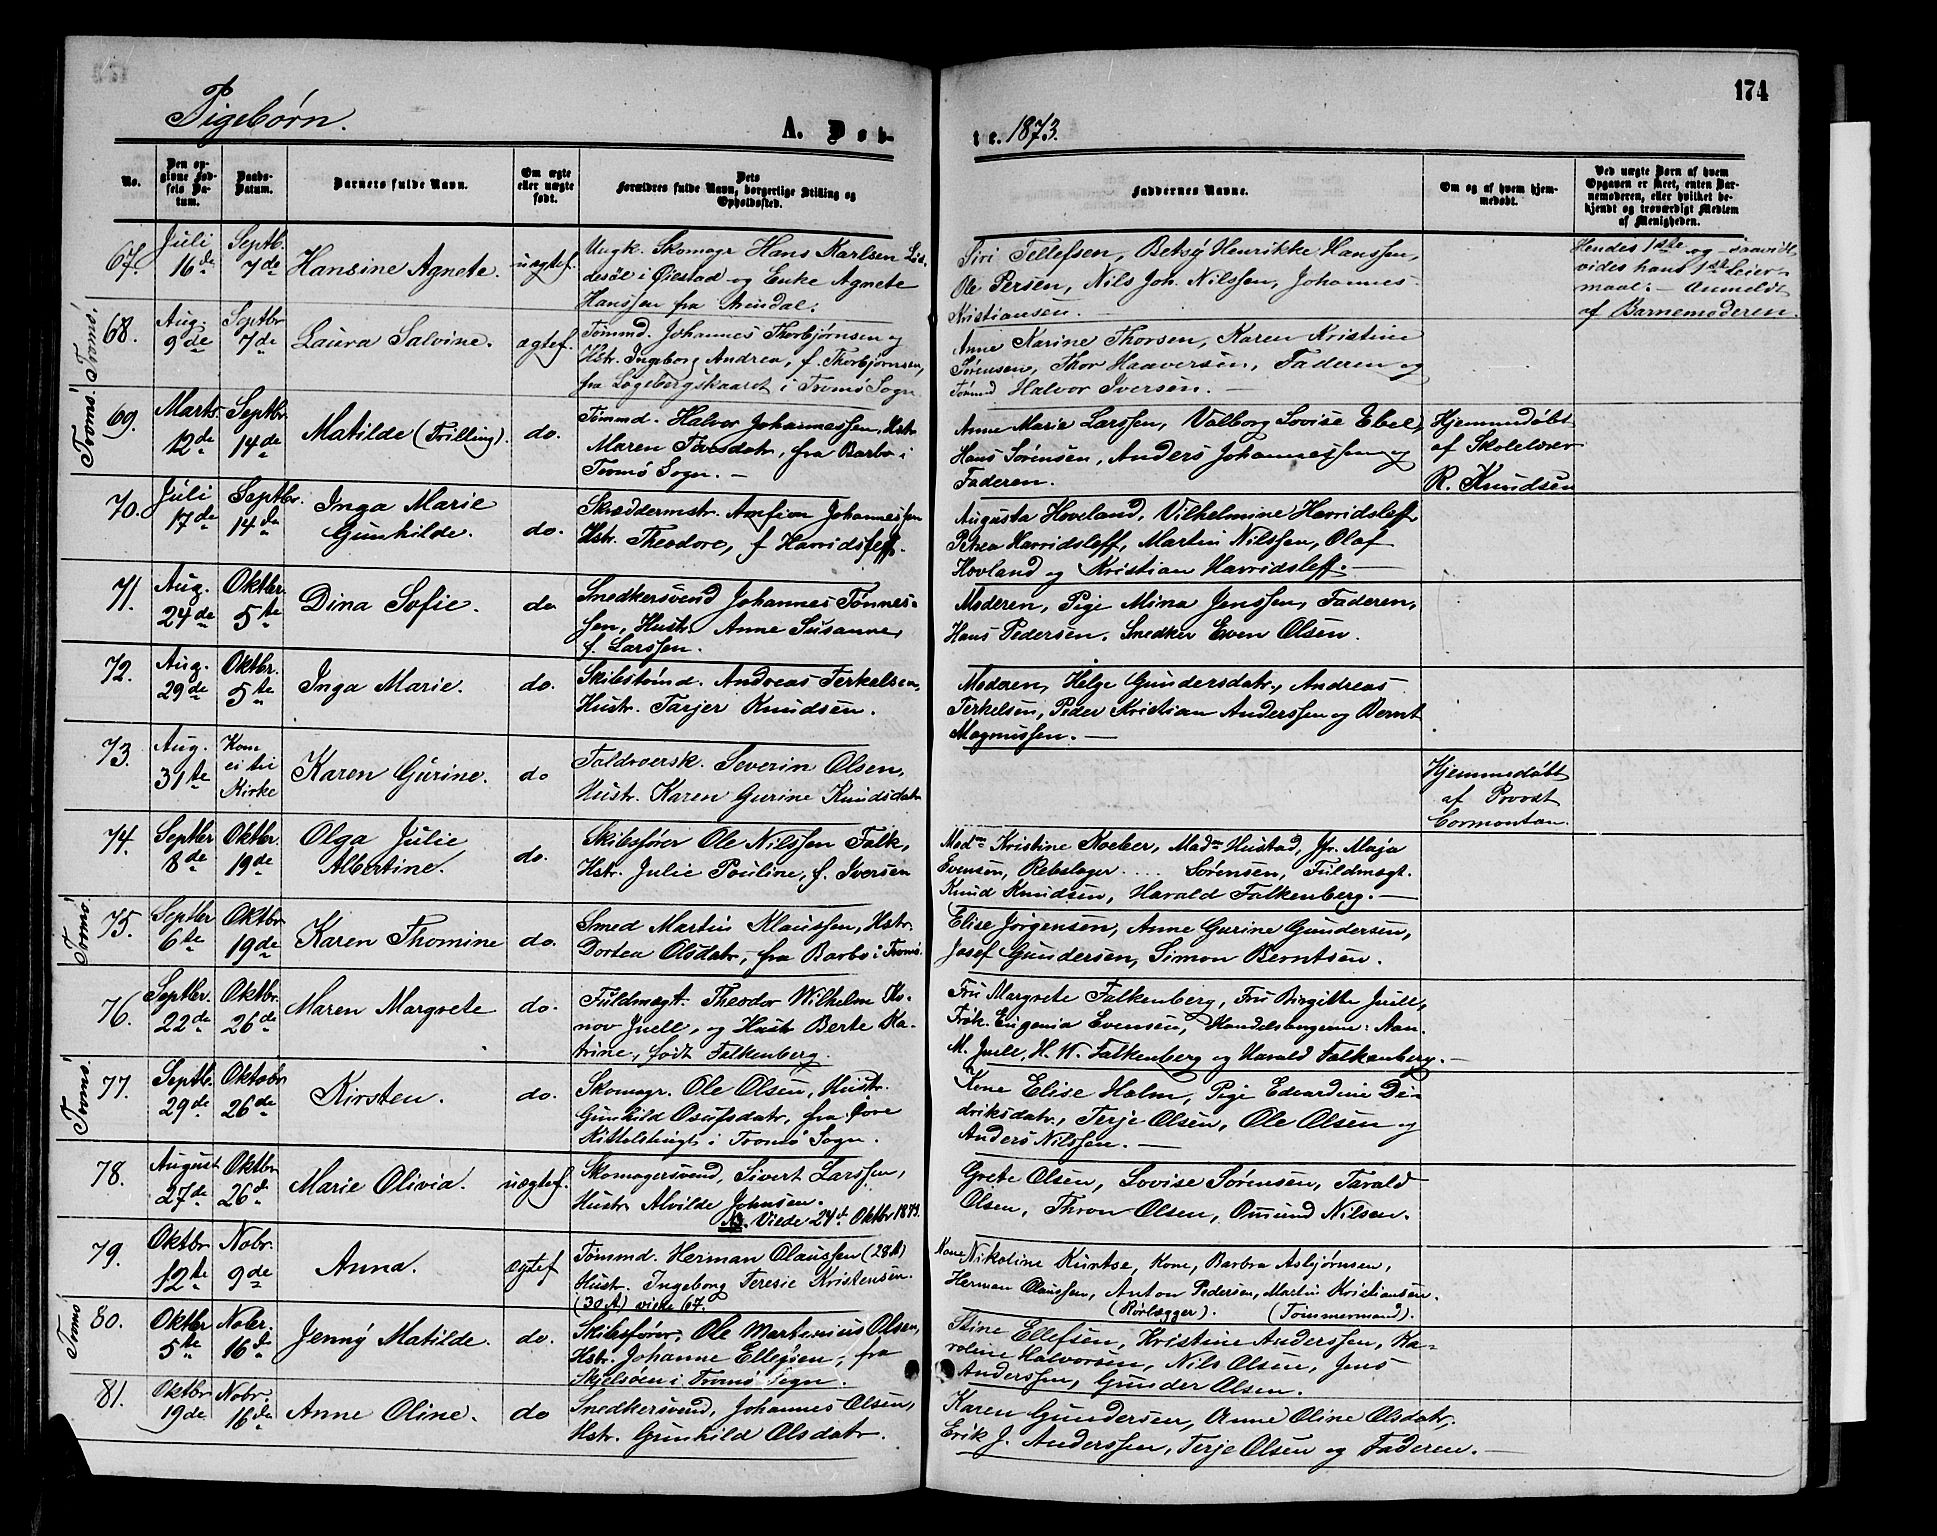 174
Pigebørn.
A. Døb-
te. 1873.
No.
Den op-
givne Fød-
sels Da-
tum.
Daabs-
Datum.
Barnets fulde Navn.
Om ægte
eller uægte
født.
Dets
Forældres fulde Navn, borgerlige Stilling og
Opholdssted.
Faddernes Navne.
Om og af hvem hjem-
medøbt.
Ved uægte Børn af hvem
Opgaven er skeet, enten Bar-
nemoderen, eller hvilket be-
kjendt og troværdigt Medlem
af Menigheden.
67. Juli 16de Septb. 7de Hansine Agnete. uægtef.
Ungk. Skomagr Hans Karlsen Lid-
desøl i Øiestad og Enke Agnete
Hanssen fra Arendal.
Siri Tellefsen, Betsy Henrikke Hanssen,
Ole Persen, Nils Joh. Nilssen, Johannes
Kristiansen.
Hendes 1ste og saavidt
vides hans 1ste Leier-
maal. - Anmeldt
af Barnemoderen.
Tromø.
68. Aug. 9de Septbr 7de Laura Salvine. ægtef.
Tømmd. Johannes Thorbjørnsen og
Hstr. Ingeborg Andrea, f. Thorbjørnsen,
fra Løgebergskaaret i Tromø Sogn
Anne Karine Thorsen, Karen Kristine
Sørensen, Thor Haaversen, Faderen og
Tømmd Halvor Iversen. -
Tromø.
69. Marts 12de Septbr 14de Matilde (Trilling). do.
Tømmd. Halvor Johannessen, Hstr
Maren Taresdatr, fra Barbo i
Tromø Sogn. -
Anne Marie Larssen, Valborg Lovise Ebel,
Hans Sørensen, Anders Johannessen og
Faderen.
Hjemmedøbt
af Skolelærer
R. Knudsen
70. Juli 17de Septbr. 14de Inga Marie
Gunhilde. do.
Skræddermstr. Amfion Johannessen
Hstr. Theodore, f Havridsleff.
Augusta Hoveland, Vilhelmine Havridsleff
Petrea Havridsleff, Martin Nilssen, Olaf
Hovland og Kristian Havridsleff. -
71. Aug. 24de Oktbr 5te Dina Sofie. do
Snedkersvend Johannes Tønnes-
sen, Hustr. Anne Susanne,
f. Larssen.
Moderen, Pige Mina Jenssen, Faderen,
Hans Pedersen, Snedker Even Olsen.
72. Aug. 29de Oktbr. 5te Inga Marie. do.
Skibstømd. Andreas Terkelsen,
Hustr. Tarjer Knudsen.
Moderen, Helge Gundersdatr, Andreas
Terkelsen, Peder Kristian Anderssen og Bernt
Magnussen. -
73. Aug. 31te Kom
ei til
Kirke Karen Gurine. do
Toldroersk. Severin Olsen,
Hustr. Karen Gurine Knudsdatr
Hjemmedøbt
af Provst
Cormontan.
74. Septbr 8de Oktbr. 19de Olga Julie
Albertine. do.
Skibsfører Ole Nilssen Falk,
Hstr. Julie Pouline, f. Iversen
Madm Kristine Kocher, Madm Hustad, Jfr. Maja
Evensen, Rebslager .... Sørensen, Fuldmægt.
Knud Knudsen, Harald Falkenberg. -
Tromø.
75. Septbr 6te Oktbr 19de Karen Thomine do.
Smed Martin Klaussen, Hstr.
Dortea Olsdatr, fra Barbo i Tromø.
Elise Jørgensen, Anne Gurine Gundersen,
Josef Gundersen, Simon Berntsen.
76. Septbr. 22de Oktbr. 26de Maren Margrete do.
Fuldmægt. Theodor Wilhelm Ko-
nov Juell, og Hustr Berte Ka-
trine, født Falkenberg.
Fru Margrete Falkenberg, Fru Birgitte Juell,
Frøk. Eugenia Evensen, Handelsborgerne: Aan.
M. Juell, H. W. Falkenberg og Harald Falkenberg. -
Tromø.
77. Septb. 29de Oktobr 26de Kirsten. do.
Skomagr. Ole Olsen, Hustr.
Gunhild Osufsdatr, fra Gove
Kittelsbugt i Tromø Sogn.
Kone Elise Holm, Pige Edvardine Di-
driksdatr, Terje Olsen, Ole Olsen og
Anders Nilssen. -
78. August 27de Oktbr 26de Marie Olivia. uægtef.
Skomagersvend, Sivert Larssen,
Hustr. Alvilde Johnsen.
NB. Viede 24d Oktbr 1873.
Grete Olsen, Lovise Sørensen, Tarald
Olsen, Thron Olsen, Omund Nilsen.
79. Oktbr 12te Nobr. 9de Anna. ægtef
Tømmd. Herman Olaussen (28 A)
Hustr. Ingeborg Teresie Kristensen.
(30 A) viede 67.
Kone Nikoline Kuntse, Kone, Barbra Asbjørnsen,
Herman Olaussen, Anton Pedersen, Martin Kristiansen.
(Rørlægger). (Tømmermand).
Tromø
80. Oktbr 5te Nobr. 16de Jenny Matilde. do.
Skibsfører. Ole Martinius Olsen,
Hstr. Johanne Ellefsen, fra
Skjelsøen i Tromø Sogn.
Stine Ellefsen, Kristine Anderssen, Ka-
roline Halvorsen, Nils Olsen, Jens
Anderssen, Gunder Olsen.
81. Oktbr 19de Nobr. 16de Anne Oline. do
Snedkersvend, Johannes Olsen,
Hstr. Gunhild Olsdatr.
Karen Gundersen, Anne Oline Olsdatr,
Erik J. Anderssen, Terje Olsen og Faderen. -